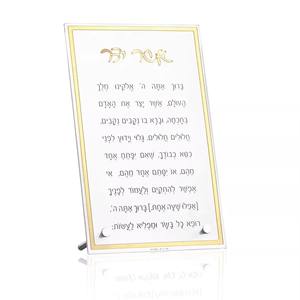 אשר יצר
ברוך אתה ה' אלקינו מלך
העולם, אשר יצר את האדם
בחכמה, וברא בו נקבים נקבים,
חלולים חלולים. גלוי וידוע לפני
כסא כבודך, שאם יפתח אחד
מהם, או יסתם אחד מהם, אי
אפשר להתקים ולעמוד לפניך
[אפילו שעה אחת.] ברוך אתה ה',
רופא כל בשר ומפליא לעשות: